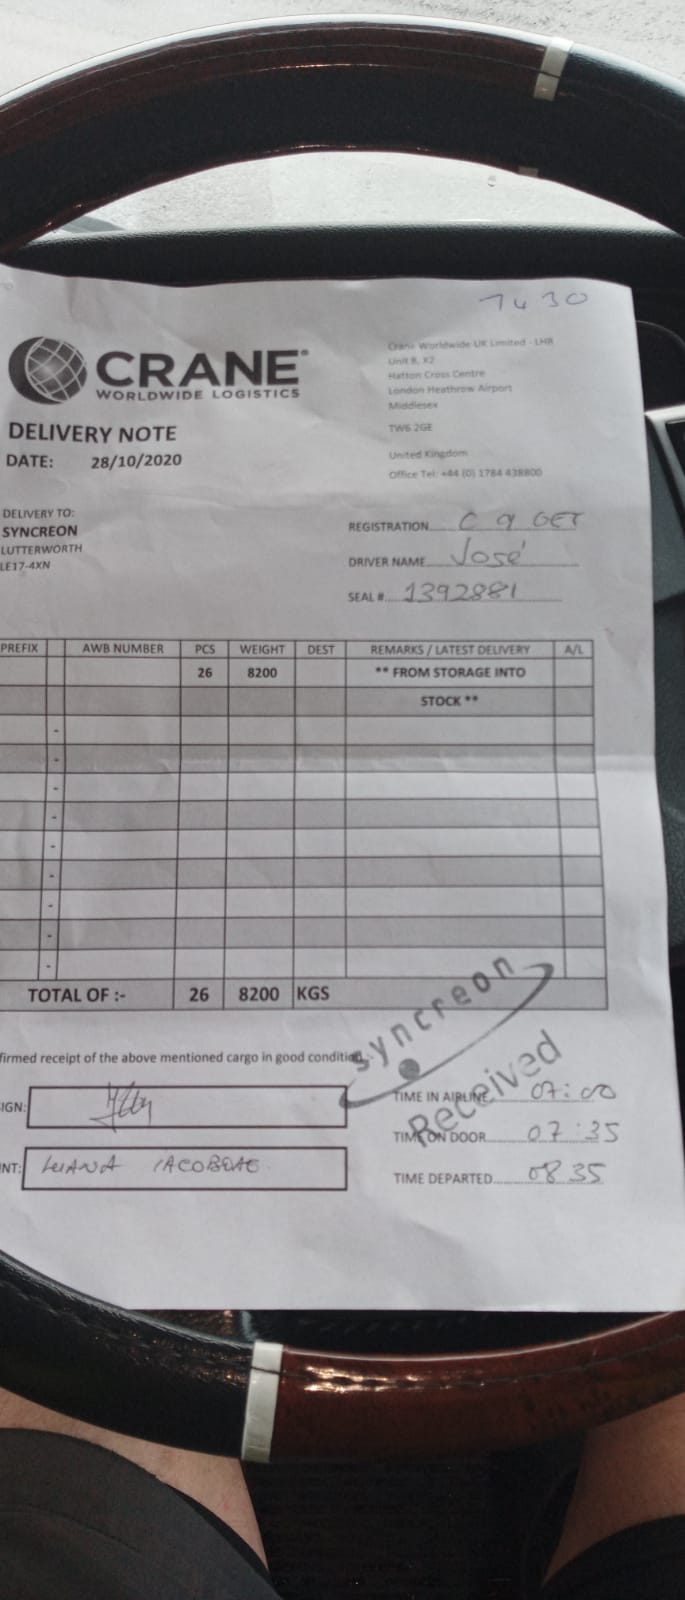 7430
CRANE
WORLDWIDE LOGISTICS
Crane Worldwide UK Limited - LHR
Unit 8, X2
Hatton Cross Centre
London Heathrow Airport
Middlesex
TW6 2GE
United Kingdom
Office Tel: +44 (0) 1784 438800
DELIVERY NOTE
DATE: 28/10/2020
DELIVERY TO:
SYNCREON
LUTTERWORTH
LE17-4XN
REGISTRATION C 9 GET
DRIVER NAME José
SEAL # 1392881
PREFIX AWB NUMBER PCS WEIGHT DEST REMARKS / LATEST DELIVERY A/L
26 8200 ** FROM STORAGE INTO
STOCK **
-
-
-
-
-
-
-
-
-
TOTAL OF :- 26 8200 KGS
syncreon
Received
firmed receipt of the above mentioned cargo in good condition :-
IGN:
INT:
TIME IN AIRLINE 07:00
TIME ON DOOR 07:35
TIME DEPARTED 08 35